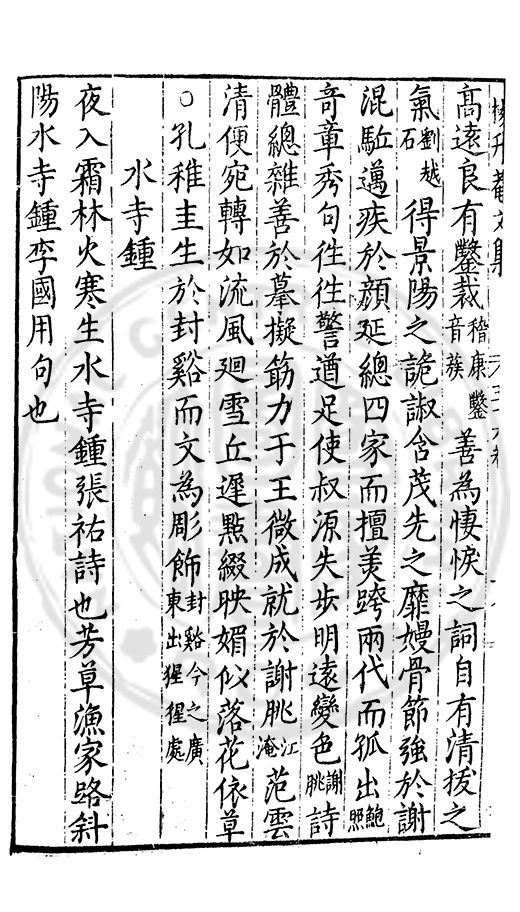 楊升菴文集
高遠良有鑒裁稽康鑒音蔟善為悽悷之詞自有清拔之
氣劉越石得景陽之詭諔含茂先之靡嫚骨節強於謝
混駈邁疾於顔延總四家而擅美跨兩代而孤出鮑照
竒章秀句徃徃警遒足使叔源失步明遠變色謝脁詩
體總雜善於摹擬筋力于王微成就於謝脁江淹范雲
清便宛轉如流風廻雪丘遲點綴映媚似落花依草
○孔稚圭生於封谿而文為彫飾封谿今之廣東出猩猩處
水寺鍾
夜入霜林火寒生水寺鍾張祐詩也芳草漁家路斜
陽水寺鍾李國用句也